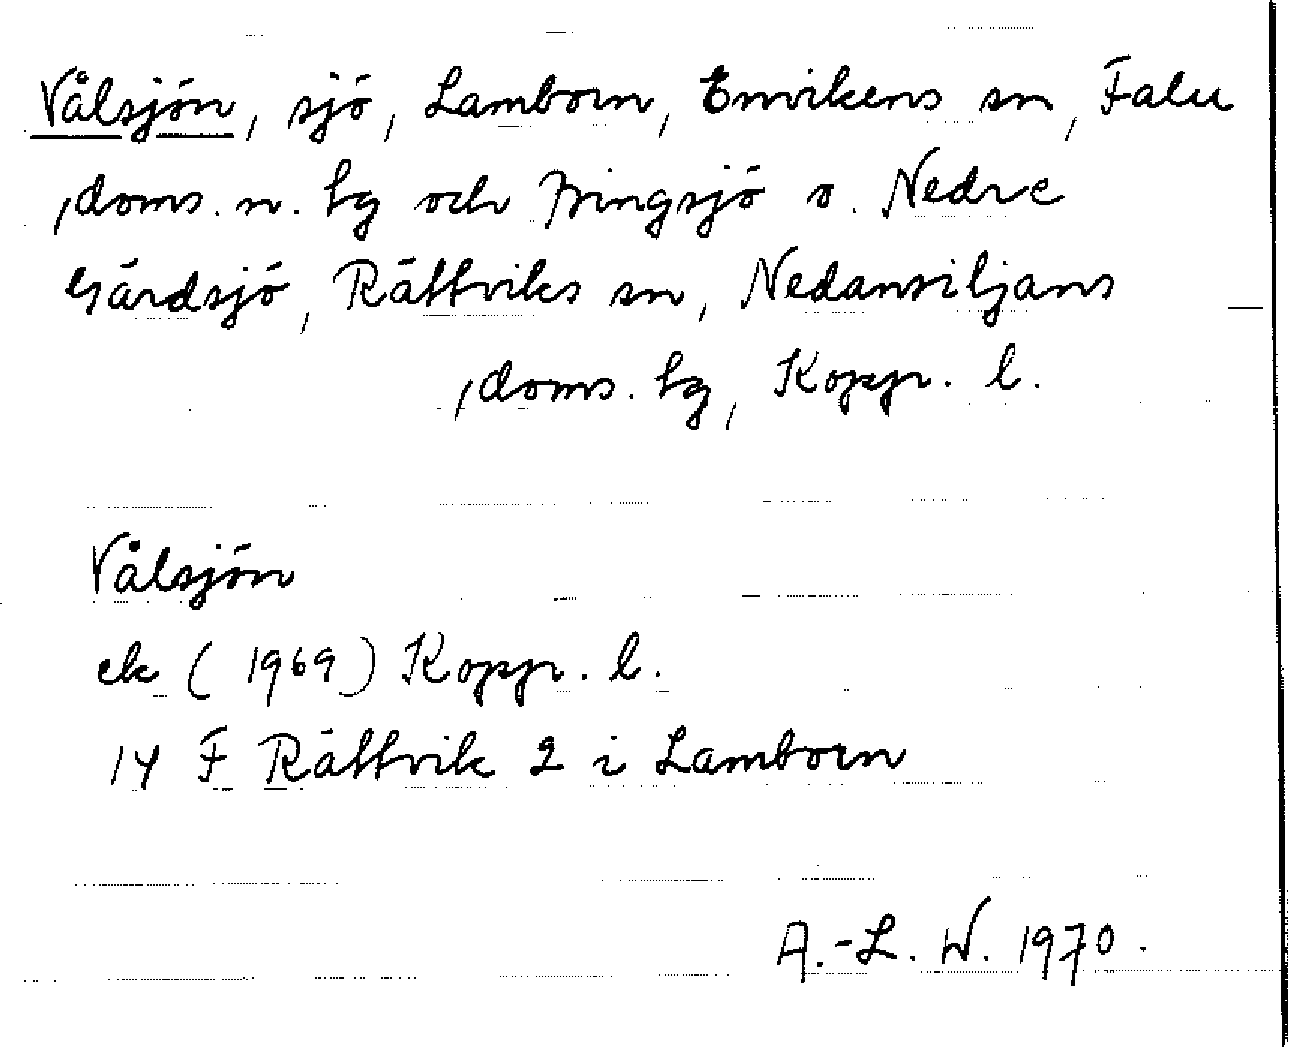 Vålsjön, sjö, Lamborn, Envikens sn, Falu
doms. n. hg och Bingsjö o. Nedre
Gärdsjö, Rättviks sn, Nedansiljans
doms. hg, Kopp. l.
Vålsjön
ek (1969) Kopp. l.
14 F Rättvik 2 i Lamborn
A.-L. W. 1970.